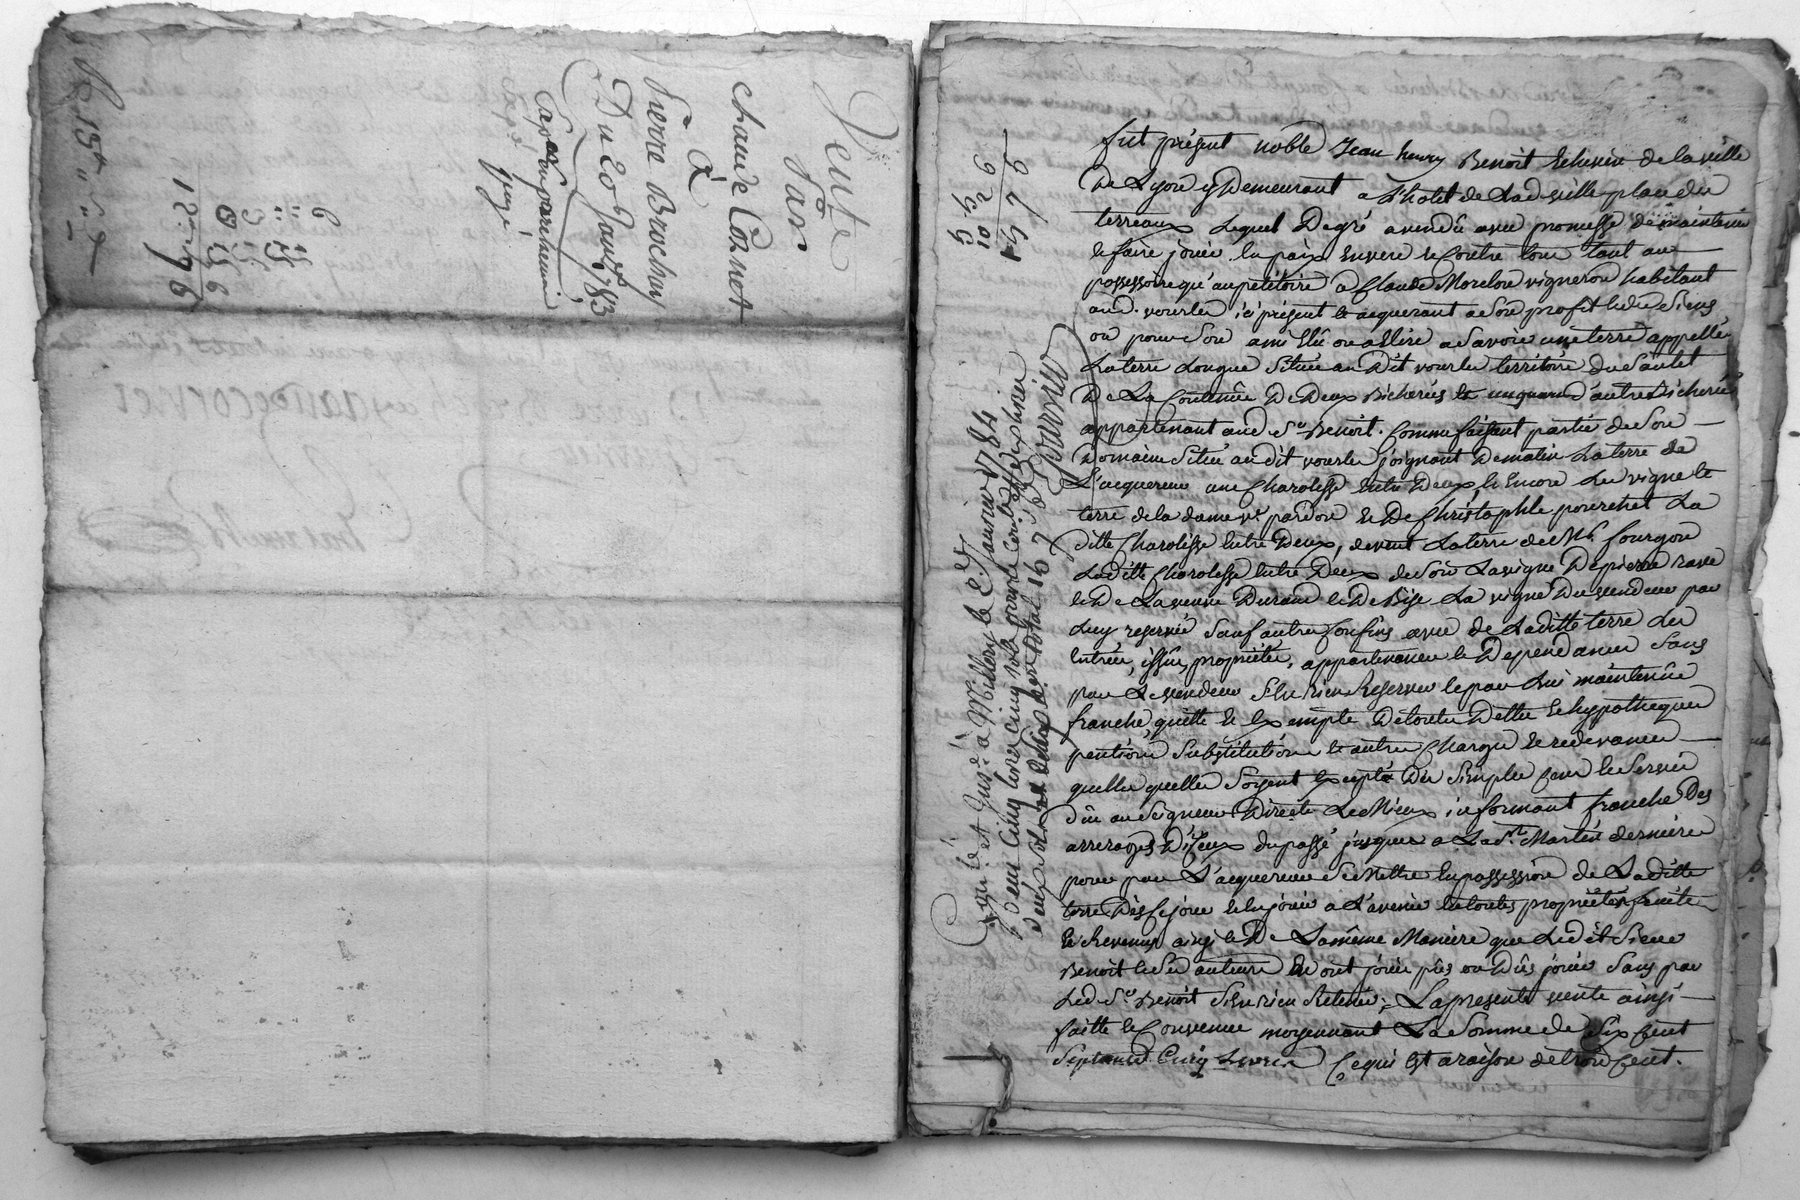 Vente
Par
Claude Cornet
à
Pierre Brochay
Du 20 Janv. 1783
Exp. en parchemin
fut présent noble Jean henry Benoit Echevin de la ville
De Lyon y Demeurant a L'hotel de Lad. ville place du
terreaux Lequel De gré a vendû avec promesse de maintenir
et faire jouir En paix Envers et Contre tous tant au
possessoire qu'au petitoire a Claude Morelon vigneron habitant
aud. vourles ici présent et acquerant a Son profit et des Siens
ou pour Son ami Elû ou a Elire a Savoir une terre appellée
La terre Longue Située au Dit vourles territoire du
De La Contenue De Deux Bicherées et un quart d'autre Bicherée
appartenant aud. Sr. Benoit. Comme faisant partie de Son
Domaine Situé au dit vourles joignant De matin La terre de
L'acquereur une Charolesse Entre Deux et Encore Les vigne et
terre de la dame ve. pardon et De Christophle pourchet La
ditte Charolesse Entre Deux, de vent La terre de Mr. fourgon
Laditte Charolesse Entre Deux de Soir La vigne De pierre rave
et De La veuve Durand et De Bise La vigne Du vendeur par
Luy reservée Sauf autres Confins avec de Laditte terre Les
Entrées, issûes, propriétés, appartenances et Dependances Sans
par Le vendeur S'En rien Reserver et par Lui maintenûe
franche, quitte et Exempte De toutes Dettes et hypotheques
pention Substitution et autres Charges et redevances
quelles quelles Soyent Excepté Des Simples Cens et Servis
Dûs au Seigneur Directe Les Mieux informant franche Des
arrerages D'iceux du passé jusques a La St. Martin derniere
pour par L'acquereur Se Mettre En possession de Laditte
terre Dès Ce jour et En jouir a L'avenir En toutes propriétés fruits
et Revenus ainsi et De La même Maniere que Led it Sieur
Benoit et Ses auteurs En ont jouir pûs ou Dûs jouir Sans par
Led. Sr. Benoit S'En rien Retenir; La presente vente ainsi
faitte et Convenue moyennant La Somme de Six Cent
Septante Cinq Livres Ce qui Est a raison de trois Cent.
a Millery le 2e Janvier 1784